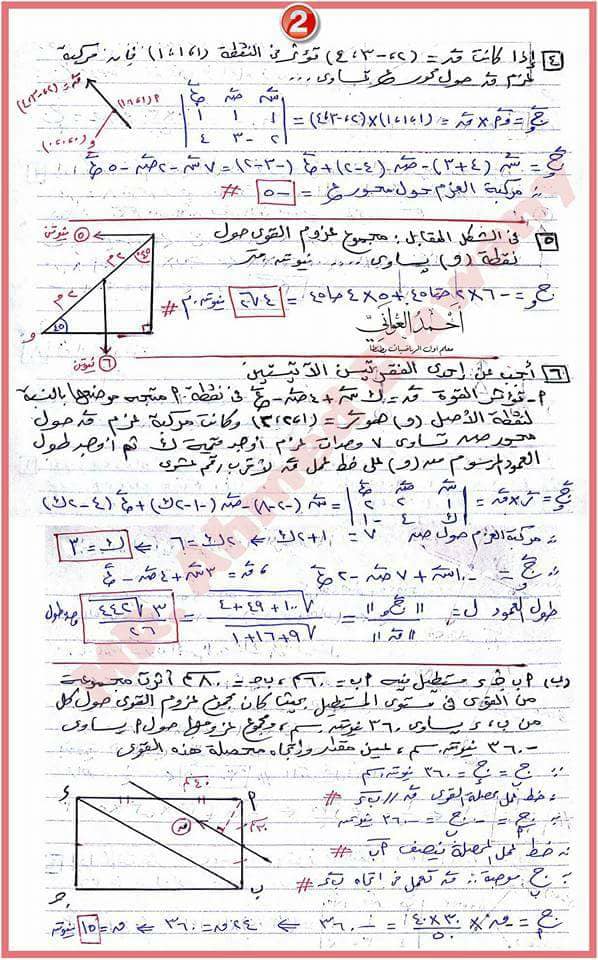 2
٤ إذا كانت ق = (-٢، -٣، ٤) تؤثر فى النقطة (١، ١، ١) فإن مركبة
عزم ق حول محور ع تساوى ...
ق = (-٢، -٣، ٤)
م (١، ١، ١)
و (٠، ٠، ٠)
ج = وم × ق = (١، ١، ١) × (-٢، -٣، ٤) =
س ص ع
١ ١ ١
-٢ -٣ ٤
ج = س (٤ + ٣) - ص (٤ - ٢) + ع (-٣ - ٢) = ٧ س - ٢ ص - ٥ ع
∴ مركبة العزم حول محور ع = -٥ #
٥ فى الشكل المقابل: مجموع عزوم القوى حول
نقطة (و) يساوى ... نيوتن. متر
٥ نيوتن
٢ م
٢ م
٤٥
٤٥
و
٦ نيوتن
أحمد العواني
معلم أول الرياضيات
٦ أجب عن إحدى الفقرتين الآتيتين
٢- تؤثر القوة ق = ك س + ٤ ص - ع فى نقطة ٢ متجه موضعها بالنسبة
لنقطة الأصل (و) هو ر = (١، ٢، ٢) وكانت مركبة عزم ق حول
محور ص تساوى ٧ وحدات عزم أوجد قيمة ك ثم أوجد طول
العمود المرسوم من (و) على خط عمل ق لأقرب رقم عشرى
ج = ر × ق =
س ص ع
١ ٢ ٢
ك ٤ -١
= س (-٢ - ٨) - ص (-١ - ٢ك) + ع (٤ - ٢ك)
∵ مركبة العزم حول ص = ٧
١ + ٢ك ⇐ ٢ك = ٦ ⇐ ك = ٣
∴ ج = -١٠ س + ٧ ص - ٢ ع
، ق = ٣ س + ٤ ص - ع
طول العمود ل = || ج || / || ق || = √(١٠٠ + ٤٩ + ٤) / √(٩ + ١٦ + ١) = ٣√٤٤٢ / ٢٦ وحدة طول
(ب) ٢ ب ج ء مستطيل فيه ٢ب = ٦٠ سم، ب ج = ٨٠ سم أثرت مجموعة
من القوى فى مستوى المستطيل بحيث كان مجموع عزوم القوى حول كل
من ب، ء يساوى ٣٦٠ نيوتن. سم، ومجموع عزومها حول ٢ يساوى
-٣٦٠ نيوتن. سم، عين مقدار واتجاه محصلة هذه القوى
∵ ج = ج = ٣٦٠ نيوتن. سم
∴ خط عمل محصلة القوى ق // بء #
∵ ج = - ج = -٣٦٠ نيوتن. سم
∴ خط عمل المحصلة ينصف ٢ب #
∵ ج موجبة ∴ ق تعمل فى اتجاه بء #
٤٠ سم
٣٠ سم
ء
٢
ق
ج
ب
ج = -ق × ٤٠ × ٣٠ / ٥٠ = -٣٦٠ ⇐ ٢٤ ق = ٣٦٠ ⇐ ق = ١٥ نيوتن